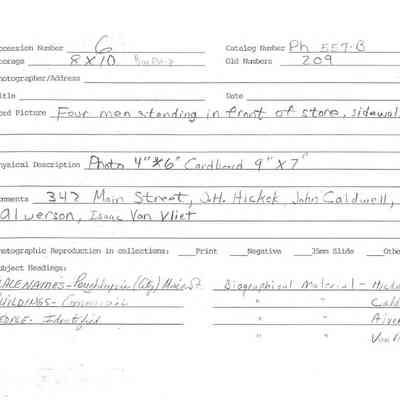 ccession Number 6 Catalog Number Ph 557-B
torage 8 X 10 Old Numbers 209
hotographer/Address
itle Date
ord Picture Four men standing in front of store, sidewal
hysical Description Photo 4"X6" Cardboard 9"X7"
omments 342 Main Street, J.H. Hickok, John Caldwell,
alverson, Isaac Van Vliet
hotographic Reproduction in collections: Print Negative 35mm Slide Othe
ubject Headings:
LACE NAMES - Poughkeepsie (City) Main St Biographical Material - Hick
UILDINGS - Commercial " " Cald
EOPLE - Identified " "
" " Van V